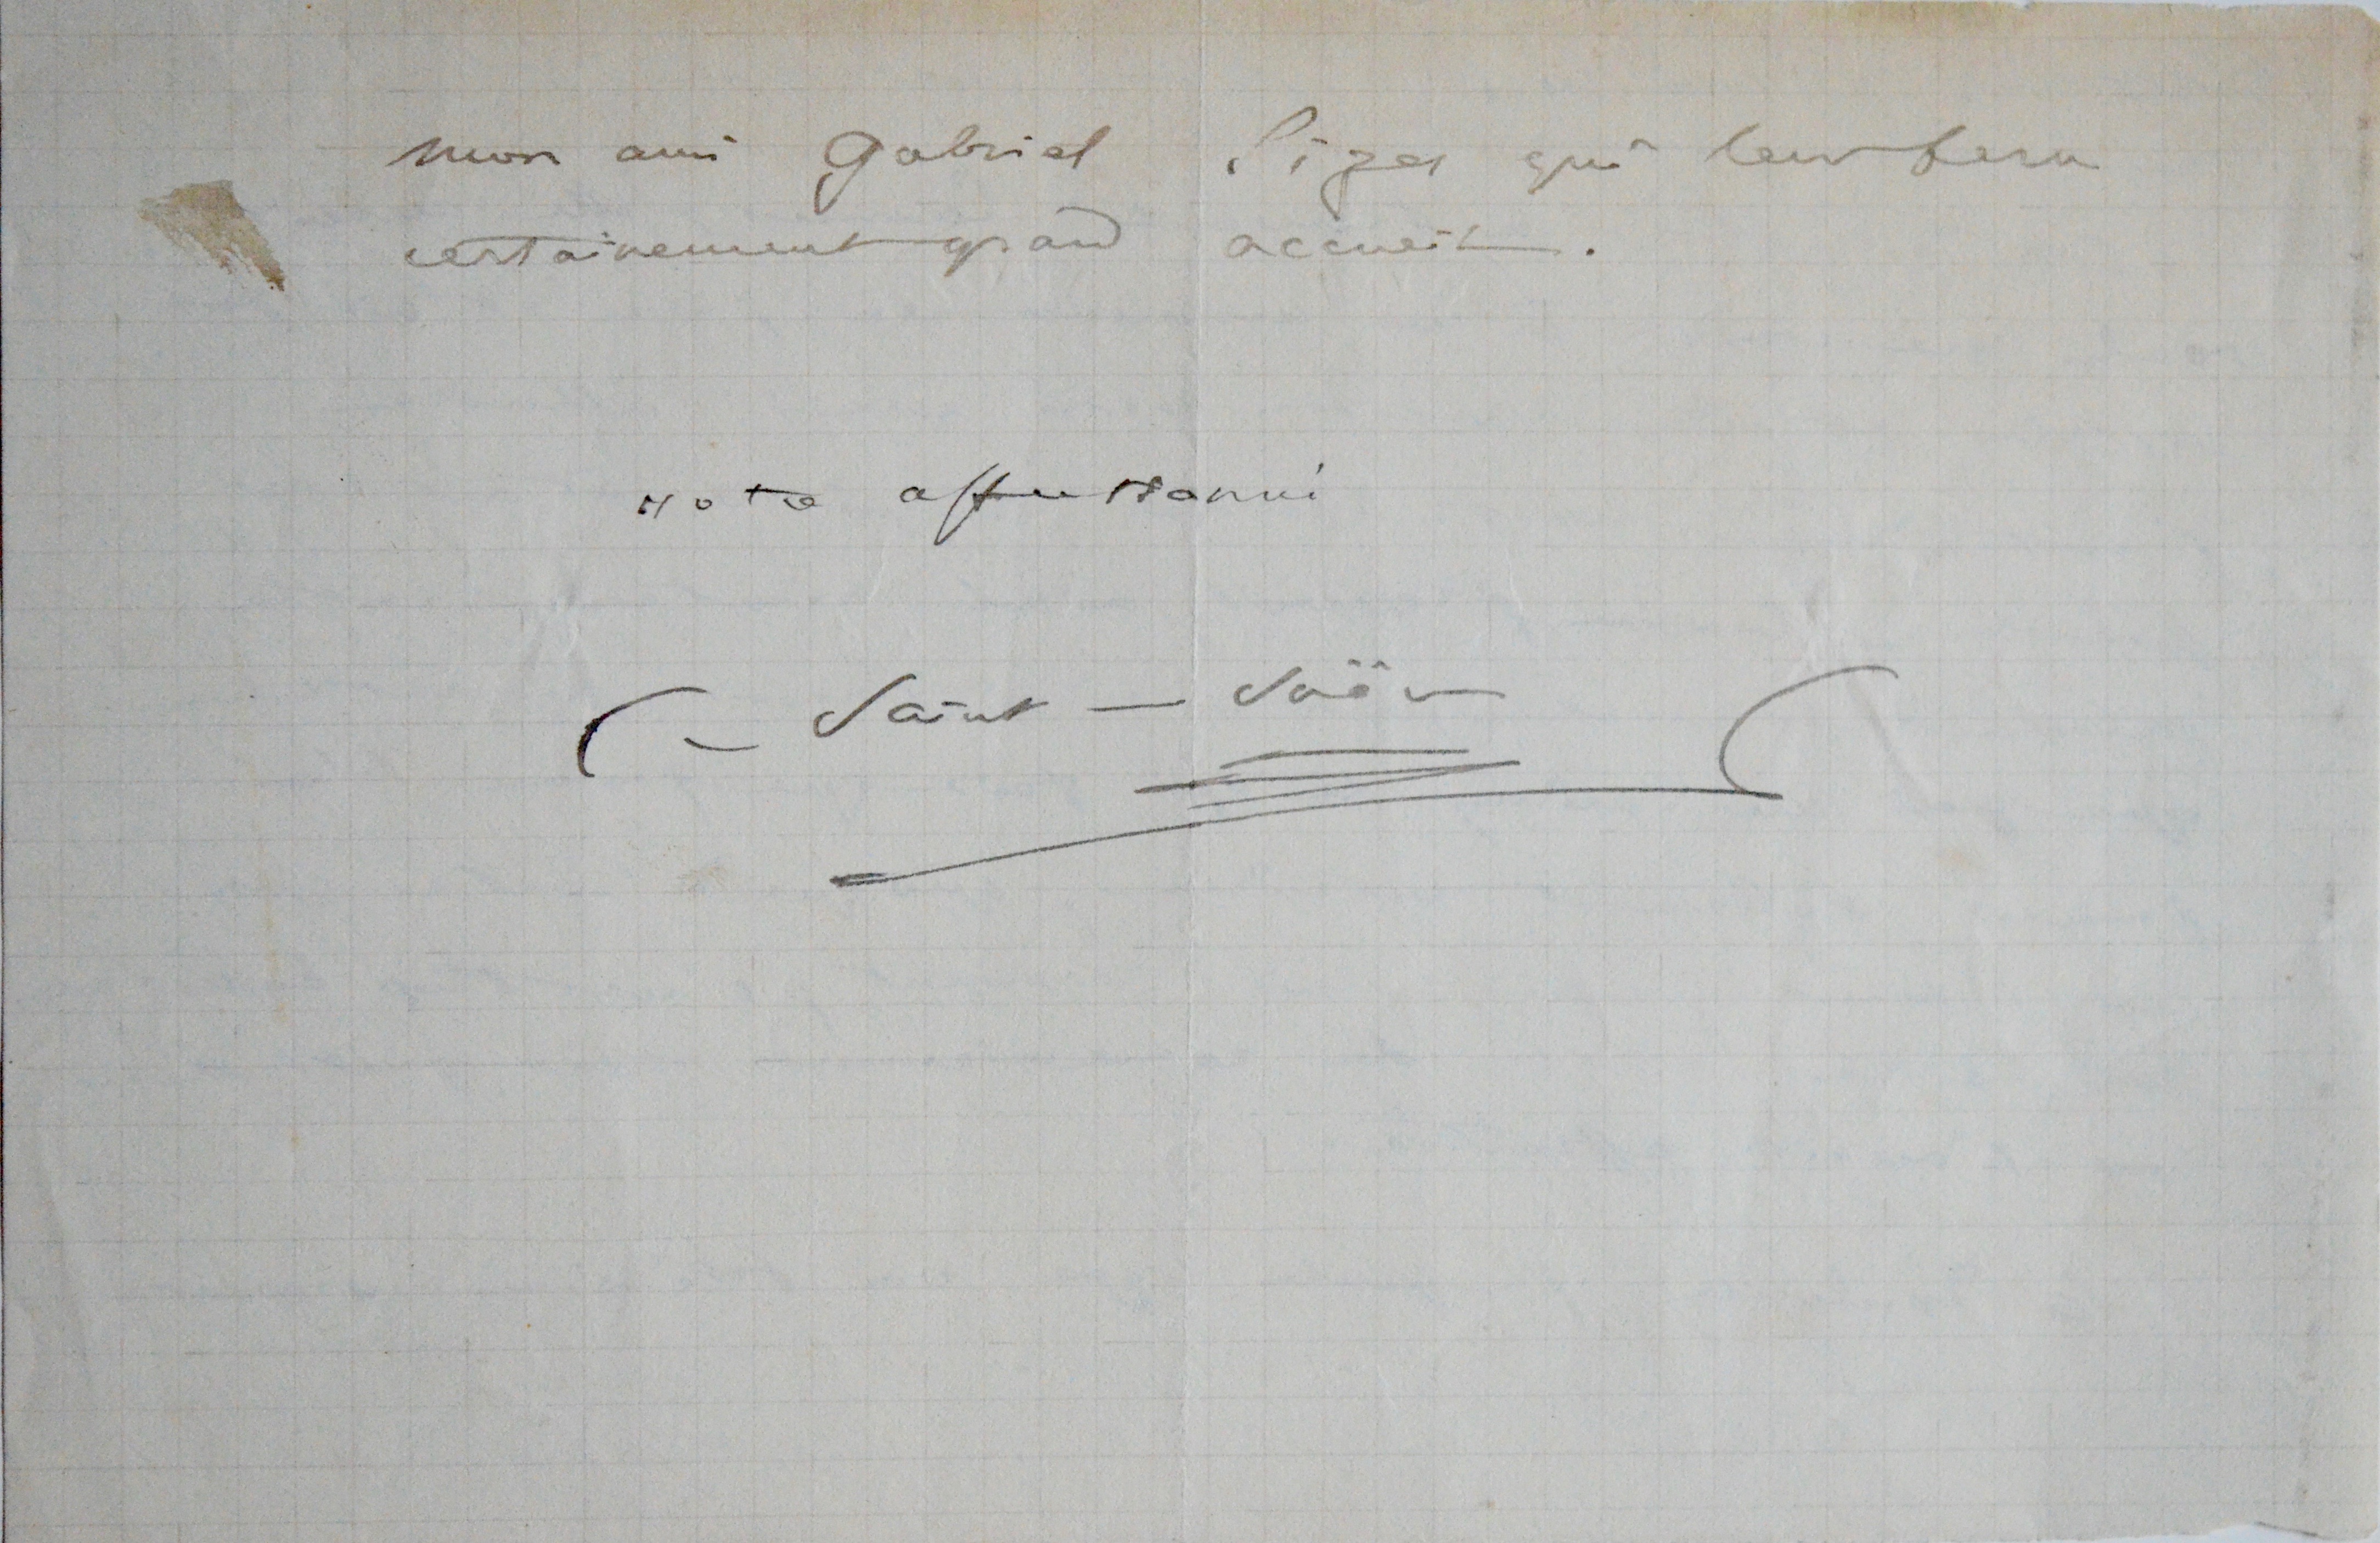 mon ami Gabriel qui leur fera
certainement grand accueil.
votre affectionné
C. Saint-Saëns